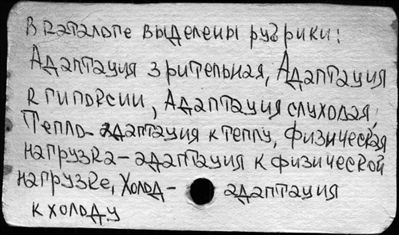 В каталоге выделены рубрики:
Адаптация зрительная, Адаптация
к гипоксии, Адаптация слуховая,
Тепло- адаптация к теплу, физическая
нагрузка - адаптация к физической
нагрузке, Холод - адаптация
к холоду